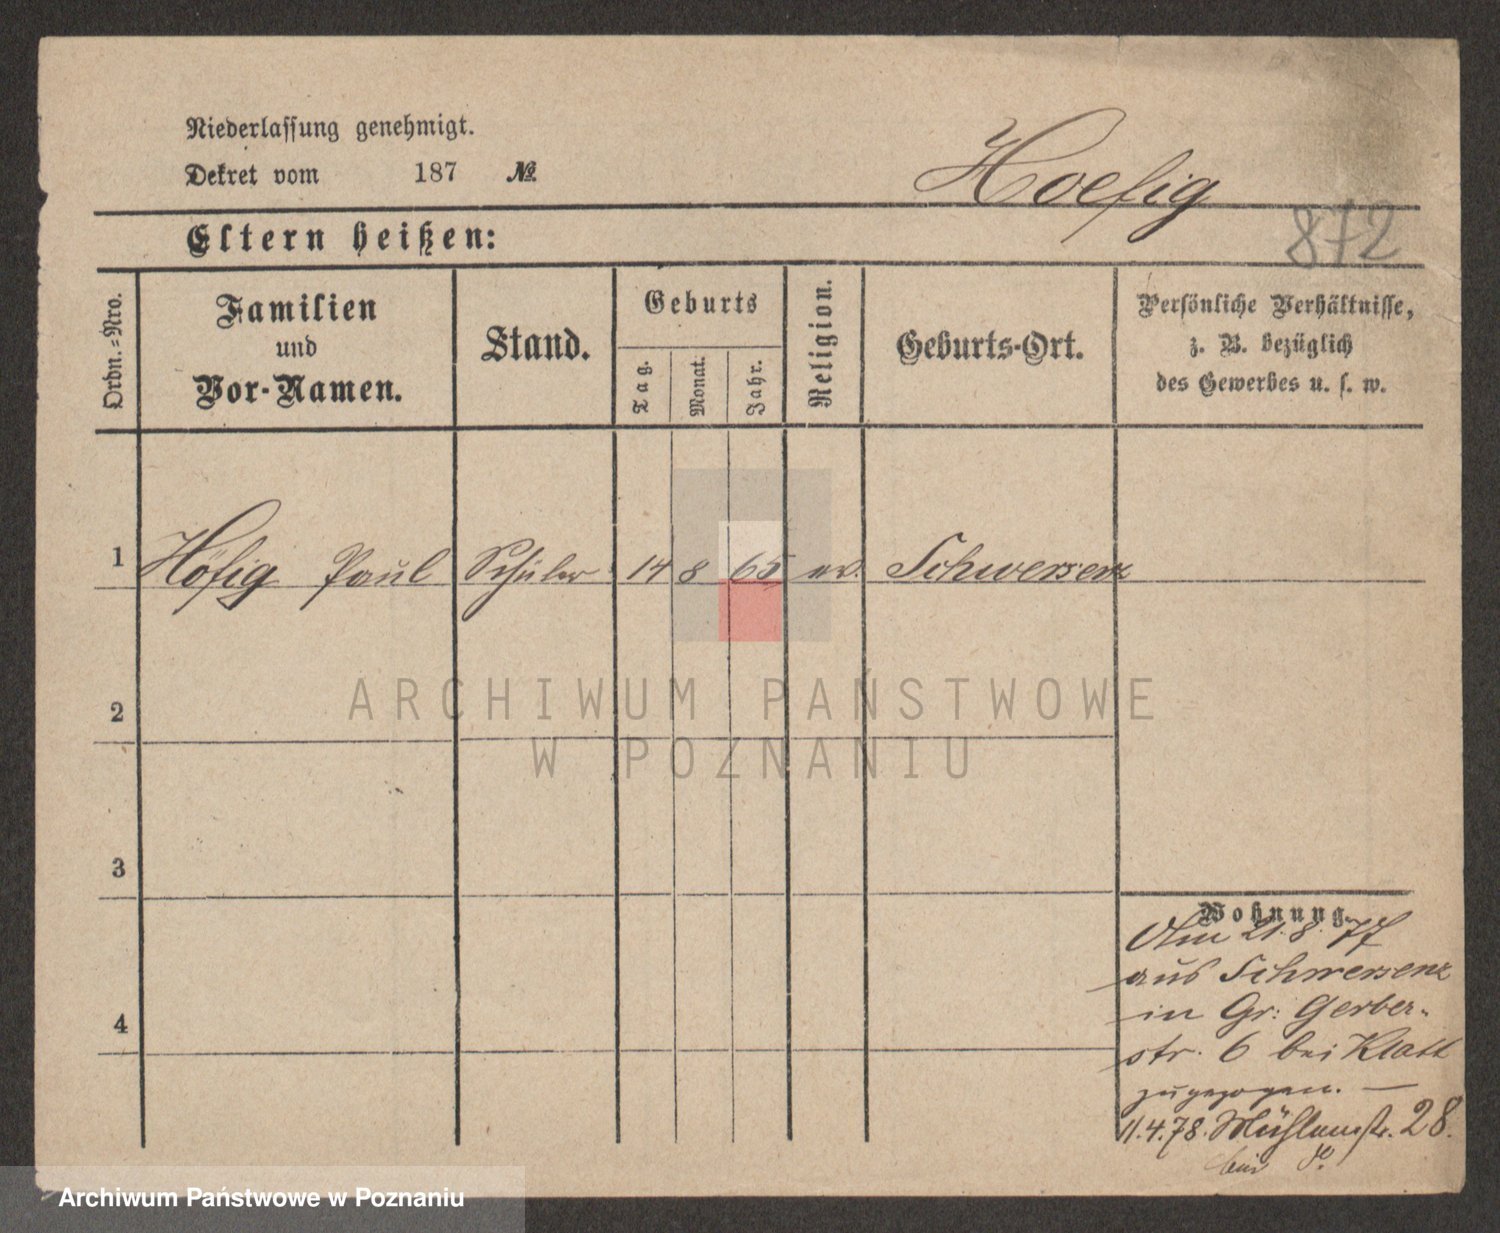 Niederlassung genehmigt.
Dekret vom 187 №
Hoefig
872
Eltern heißen:
Ordn.=Nro.
Familien
und
Vor-Namen.
Stand.
Geburts
Tag.
Monat.
Jahr.
Religion.
Geburts-Ort.
Persönliche Verhältnisse,
z. B. bezüglich
des Gewerbes u. s. w.
1 Höfig Paul Schüler 14 8 65 ev. Schwersenz
2
3
4
ARCHIWUM PAŃSTWOWE
W POZNANIU
Wohnung.
Am 21.8.77
aus Schwersenz
in Gr: Gerber-
str. 6 bei Klatt
zugezogen. —
11.4.78. Mühlenstr. 28.
bei
Archiwum Państwowe w Poznaniu